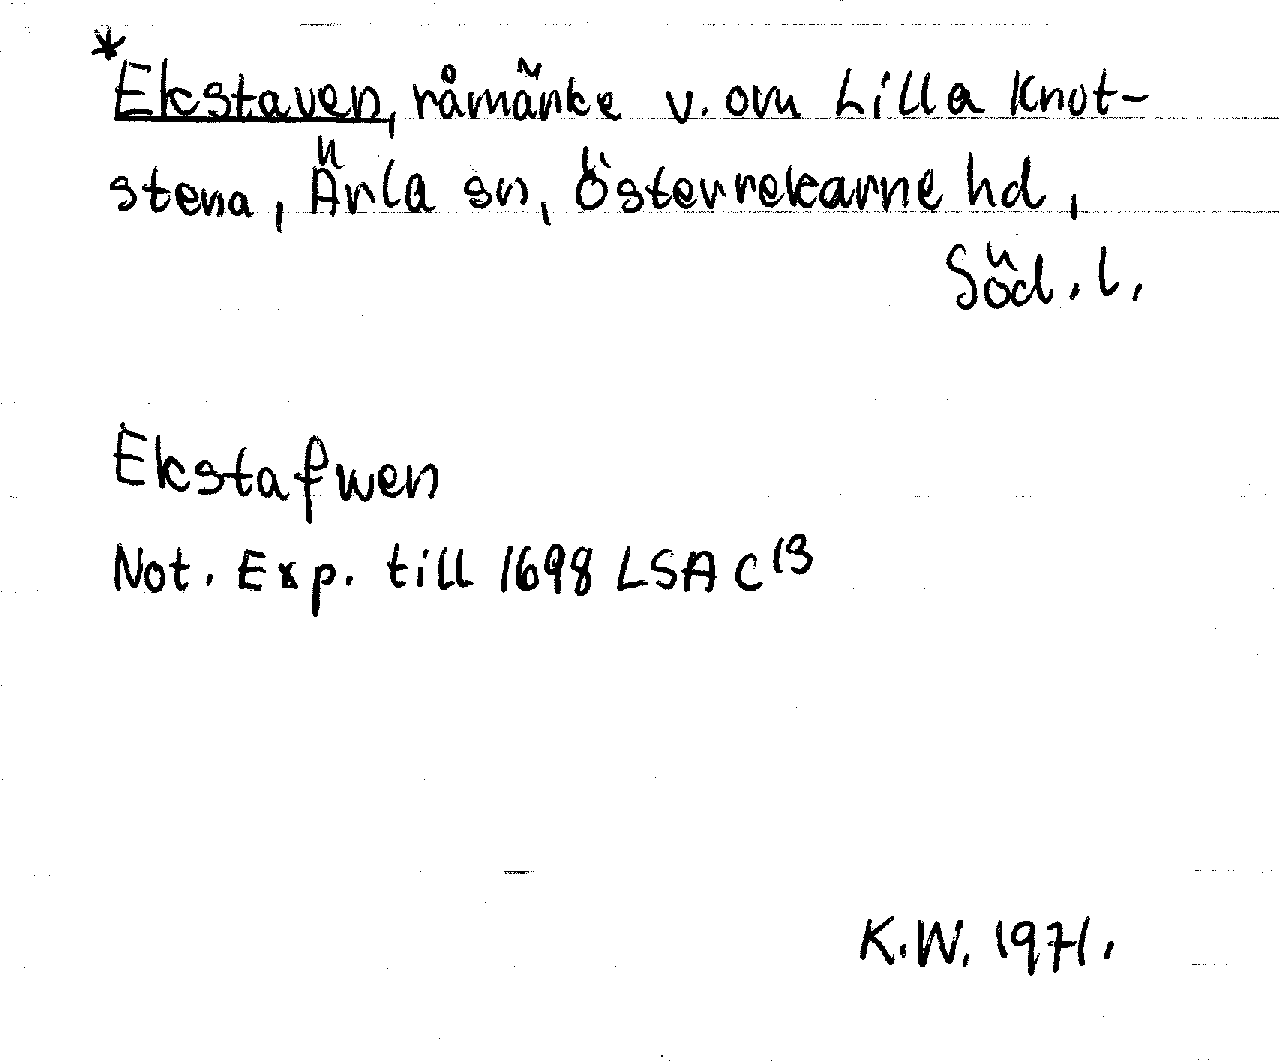 *Ekstaven, råmärke v. om Lilla Knot-
stena, Ärla sn, Österrekarne hd,
Söd. l.
Ekstafwen
Not. Exp. till 1698 LSA C 13
K.W. 1971.